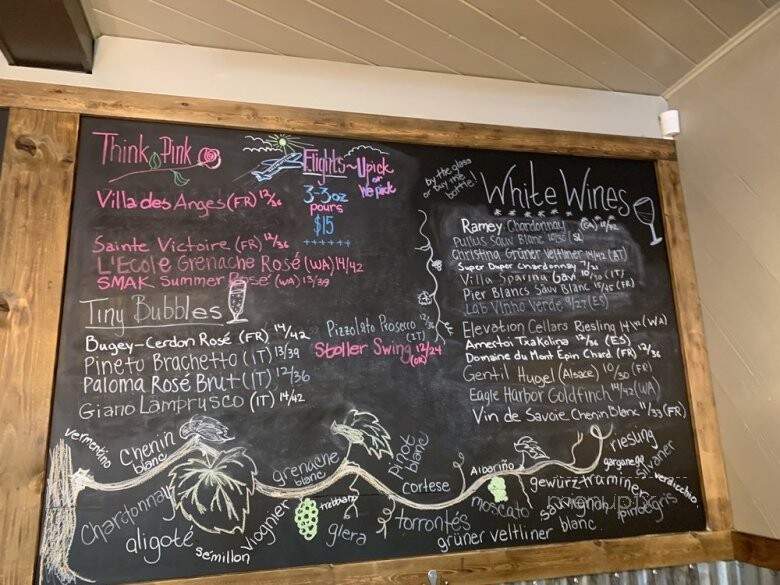 Think Pink
Villa des Anges (FR) 12/36
Sainte Victoire (FR) 12/36
L'Ecole Grenache Rosé (WA) 14/42
SMAK Summer Rosé (WA) 13/39
Flights~Upick
or
We pick
3-3oz
pours
$15
Tiny Bubbles
Bugey-Cerdon Rosé (FR) 14/42
Pineto Brachetto (IT) 13/39
Paloma Rosé Brut (IT) 12/36
Giano Lamprusco (IT) 14/42
Pizzolato Prosecco
(IT)
Stoller Swing 12/24
(OR)
by the glass
or buy the
bottle!
White Wines
Ramey Chardonnay (CA)
Pullus Sauv Blanc
Christina Grüner Veltliner 14/42 (AT)
Super Duper Chardonnay
Villa Sparina Gavi 10/30 (IT)
Pier Blancs Sauv Blanc 15/45 (FR)
Lab Vinho Verde 9/27 (ES)
Elevation Cellars Riesling 14/42 (WA)
Ameztoi Txakolina 12/36 (ES)
Domaine du Mont Epin Chard (FR) 12/36
Gentil Hugel (Alsace) 10/30 (FR)
Eagle Harbor Goldfinch 14/42 (WA)
Vin de Savoie Chenin Blanc 11/33 (FR)
vermentino
Chenin
blanc
grenache
blanc
pinot
blanc
Albariño
riesling
garganega
sylvaner
verdicchio
Chardonnay
aligoté
semillon
viognier
trebbiano
glera
cortese
torrontés
moscato
gewürztraminer
sauvignon
blanc
pinot gris
grüner veltliner